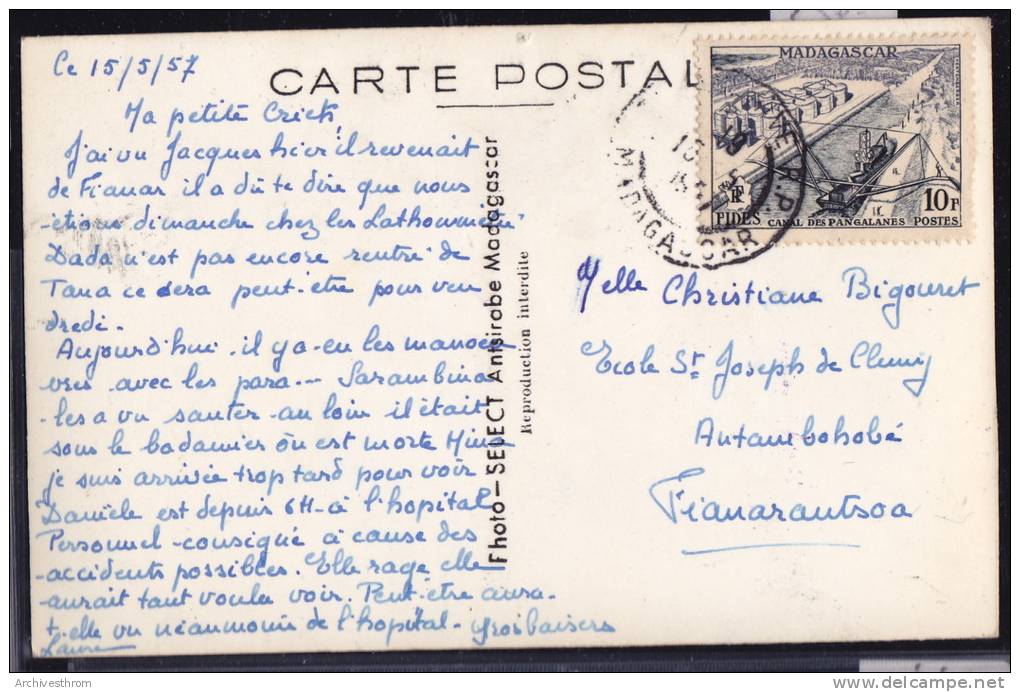 Ce 15/5/57
CARTE POSTAL
Ma petite Crick,
J'ai vu Jacques hier il revenait
de Fianar il a dû te dire que nous
étions dimanche chez les
Dada n'est pas encore rentré de
Tana ce sera peut-être pour ven
dredi.
Aujourd'hui il y a eu les manoeu
vres avec les para... Sarambina
les a vu sauter au loin il était
sous le badamier où est morte Mina
je suis arrivée trop tard pour voir
Danièle est depuis 6H à l'hopital
Personnel consigné à cause des
accidents possibles. Elle rage elle
aurait tant voulu voir. Peut-être aura-
t-elle vu néanmoins de l'hopital - Gros baisers
Laure
Photo - SELECT Antsirabe Madagascar
Reproduction interdite
MADAGASCAR
RF
FIDES
CANAL DES PANGALANES
POSTES
10F
R.P.
MADAGASCAR
Melle Christiane Bigouret
Ecole St Joseph de Cluny
Antambohobé
Fianarantsoa
Archivesthrom
delcampe.net